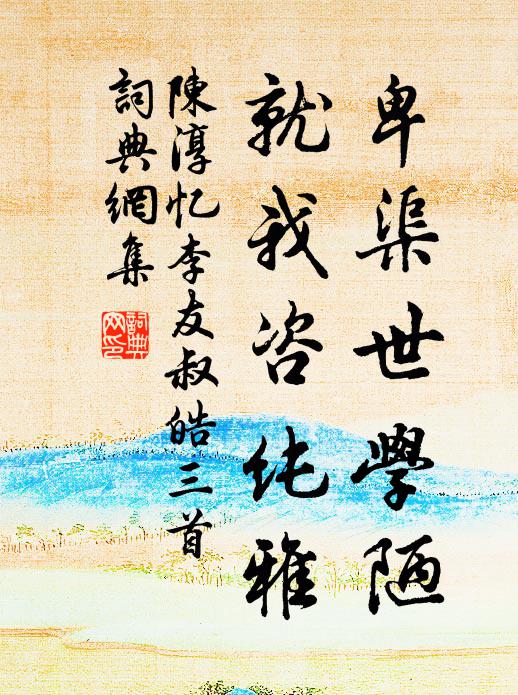 卑渠世學陋
就我咨纯雅
陳淳忆李友叔皓三首
詞典網集
詞典网印